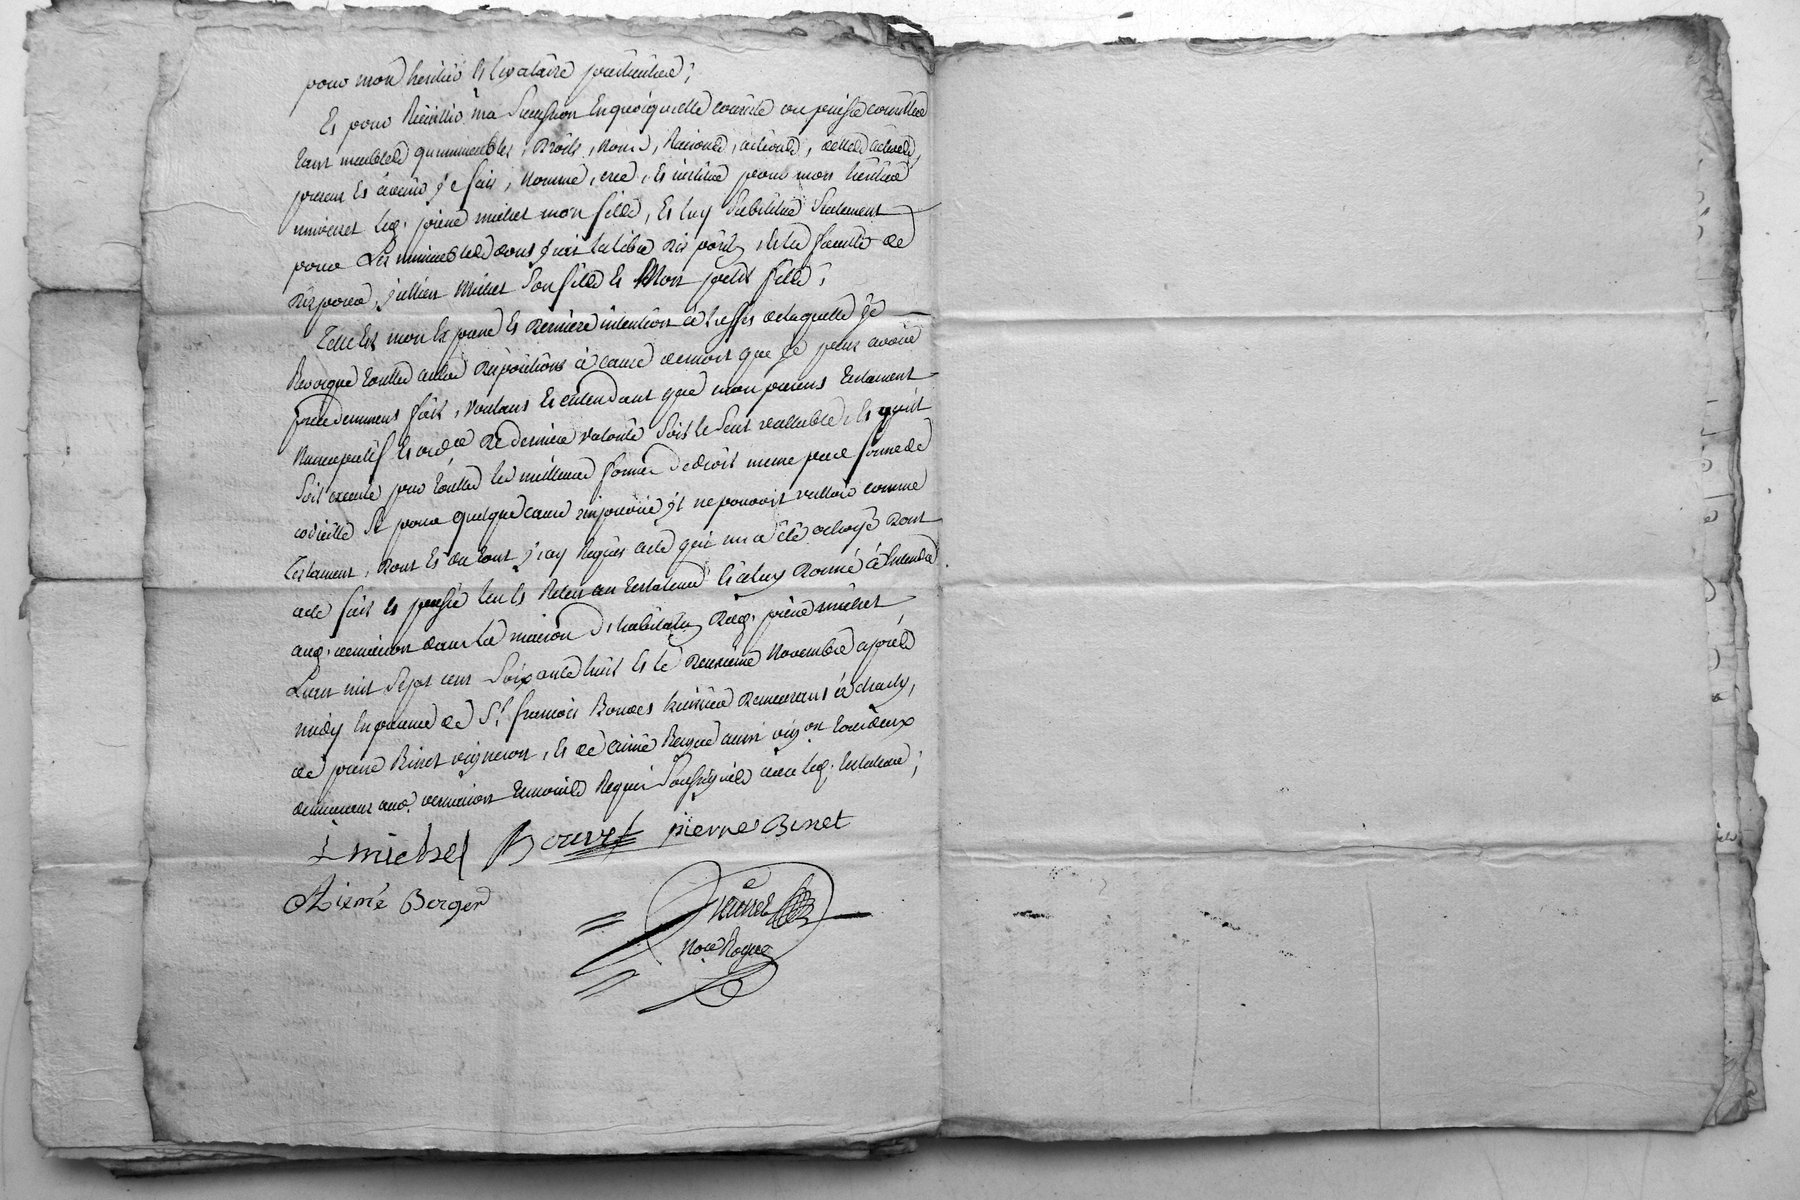 pour mon heritier et legataire particulier ;
Et pour Recüeillir ma Succession En quoiquelle consiste ou puisse consister
tant meubles qu'immeubles, Droits, Noms, Raisons, actions, dettes actives,
presens Et avenir je fais, Nomme, crée, Et institue pour mon heritier
universel led. pierre michel mon fils, Et luy Substitue Seulement
pour Les immeubles dont j'ais la libre disposition, Et la faculté de
disposer, jullien Michel Son fils Et Mon petit fils ;
Telle Est mon Expresse Et Derniere intention à L'effet de laquelle je
Revoque toutes autres dispositions à cause de mort que je peux avoir
precedemment fait, voulant Et entendant que mon present testament
Nuncupatif Et ord.re De derniere volonté Soit le Seul vallable, Et qu'il
Soit executé par toutes les meilleures formes de droit meme par forme de
codicille Si pour quelque cause imprevue il ne pouvoit valloir comme
Testament, Dont Et du tout j'ay Requis acte qui m'a été octroyé Dont
acte fait Et passé leu Et Releu au testateur Et à luy Donné à Entendre
aud. vernaison dans La maison d'habitation Dud. pierre michel
L'an mil Sept cent Soixante huit Et le deuxieme Novembre après
midy En presence de S.r francois Bouvet huissier Demeurant à charly,
de pierre Binet vigneron, Et de Aimé Berger aussi vig.on tous deux
demeurans aud. vernaison temoins Requis Soussignés avec led. testateur ;
L michel Bouvet pierre Binet
Aiemé Berger
No.re Royal